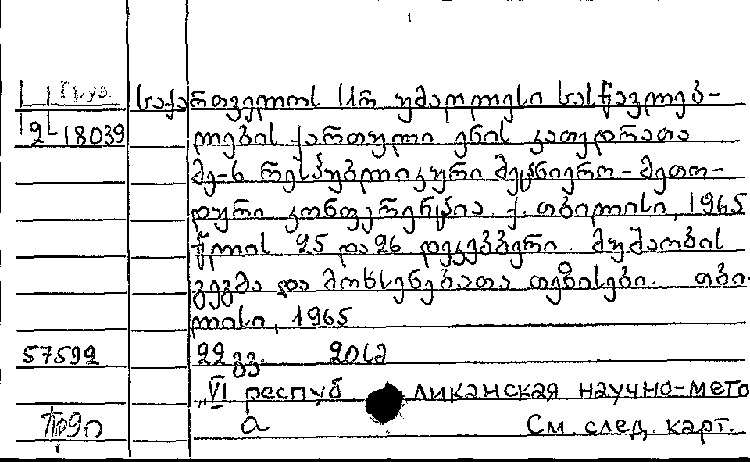 Груз. საქართველოს სსრ უმაღლესი სასწავლებ-
2-18039 ლების ქართული ენის კათედრათა
მე-6 რესპუბლიკური მეცნიერო-მეთო-
დური კონფერენცია. ქ. თბილისი, 1965
წლის 25 და 26 დეკემბერი. მუშაობის
გეგმა და მოხსენებათა თეზისები. თბი-
ლისი, 1965
57592 22 გვ. 20სმ
„VI республиканская научно-мето
а См. след. карт.